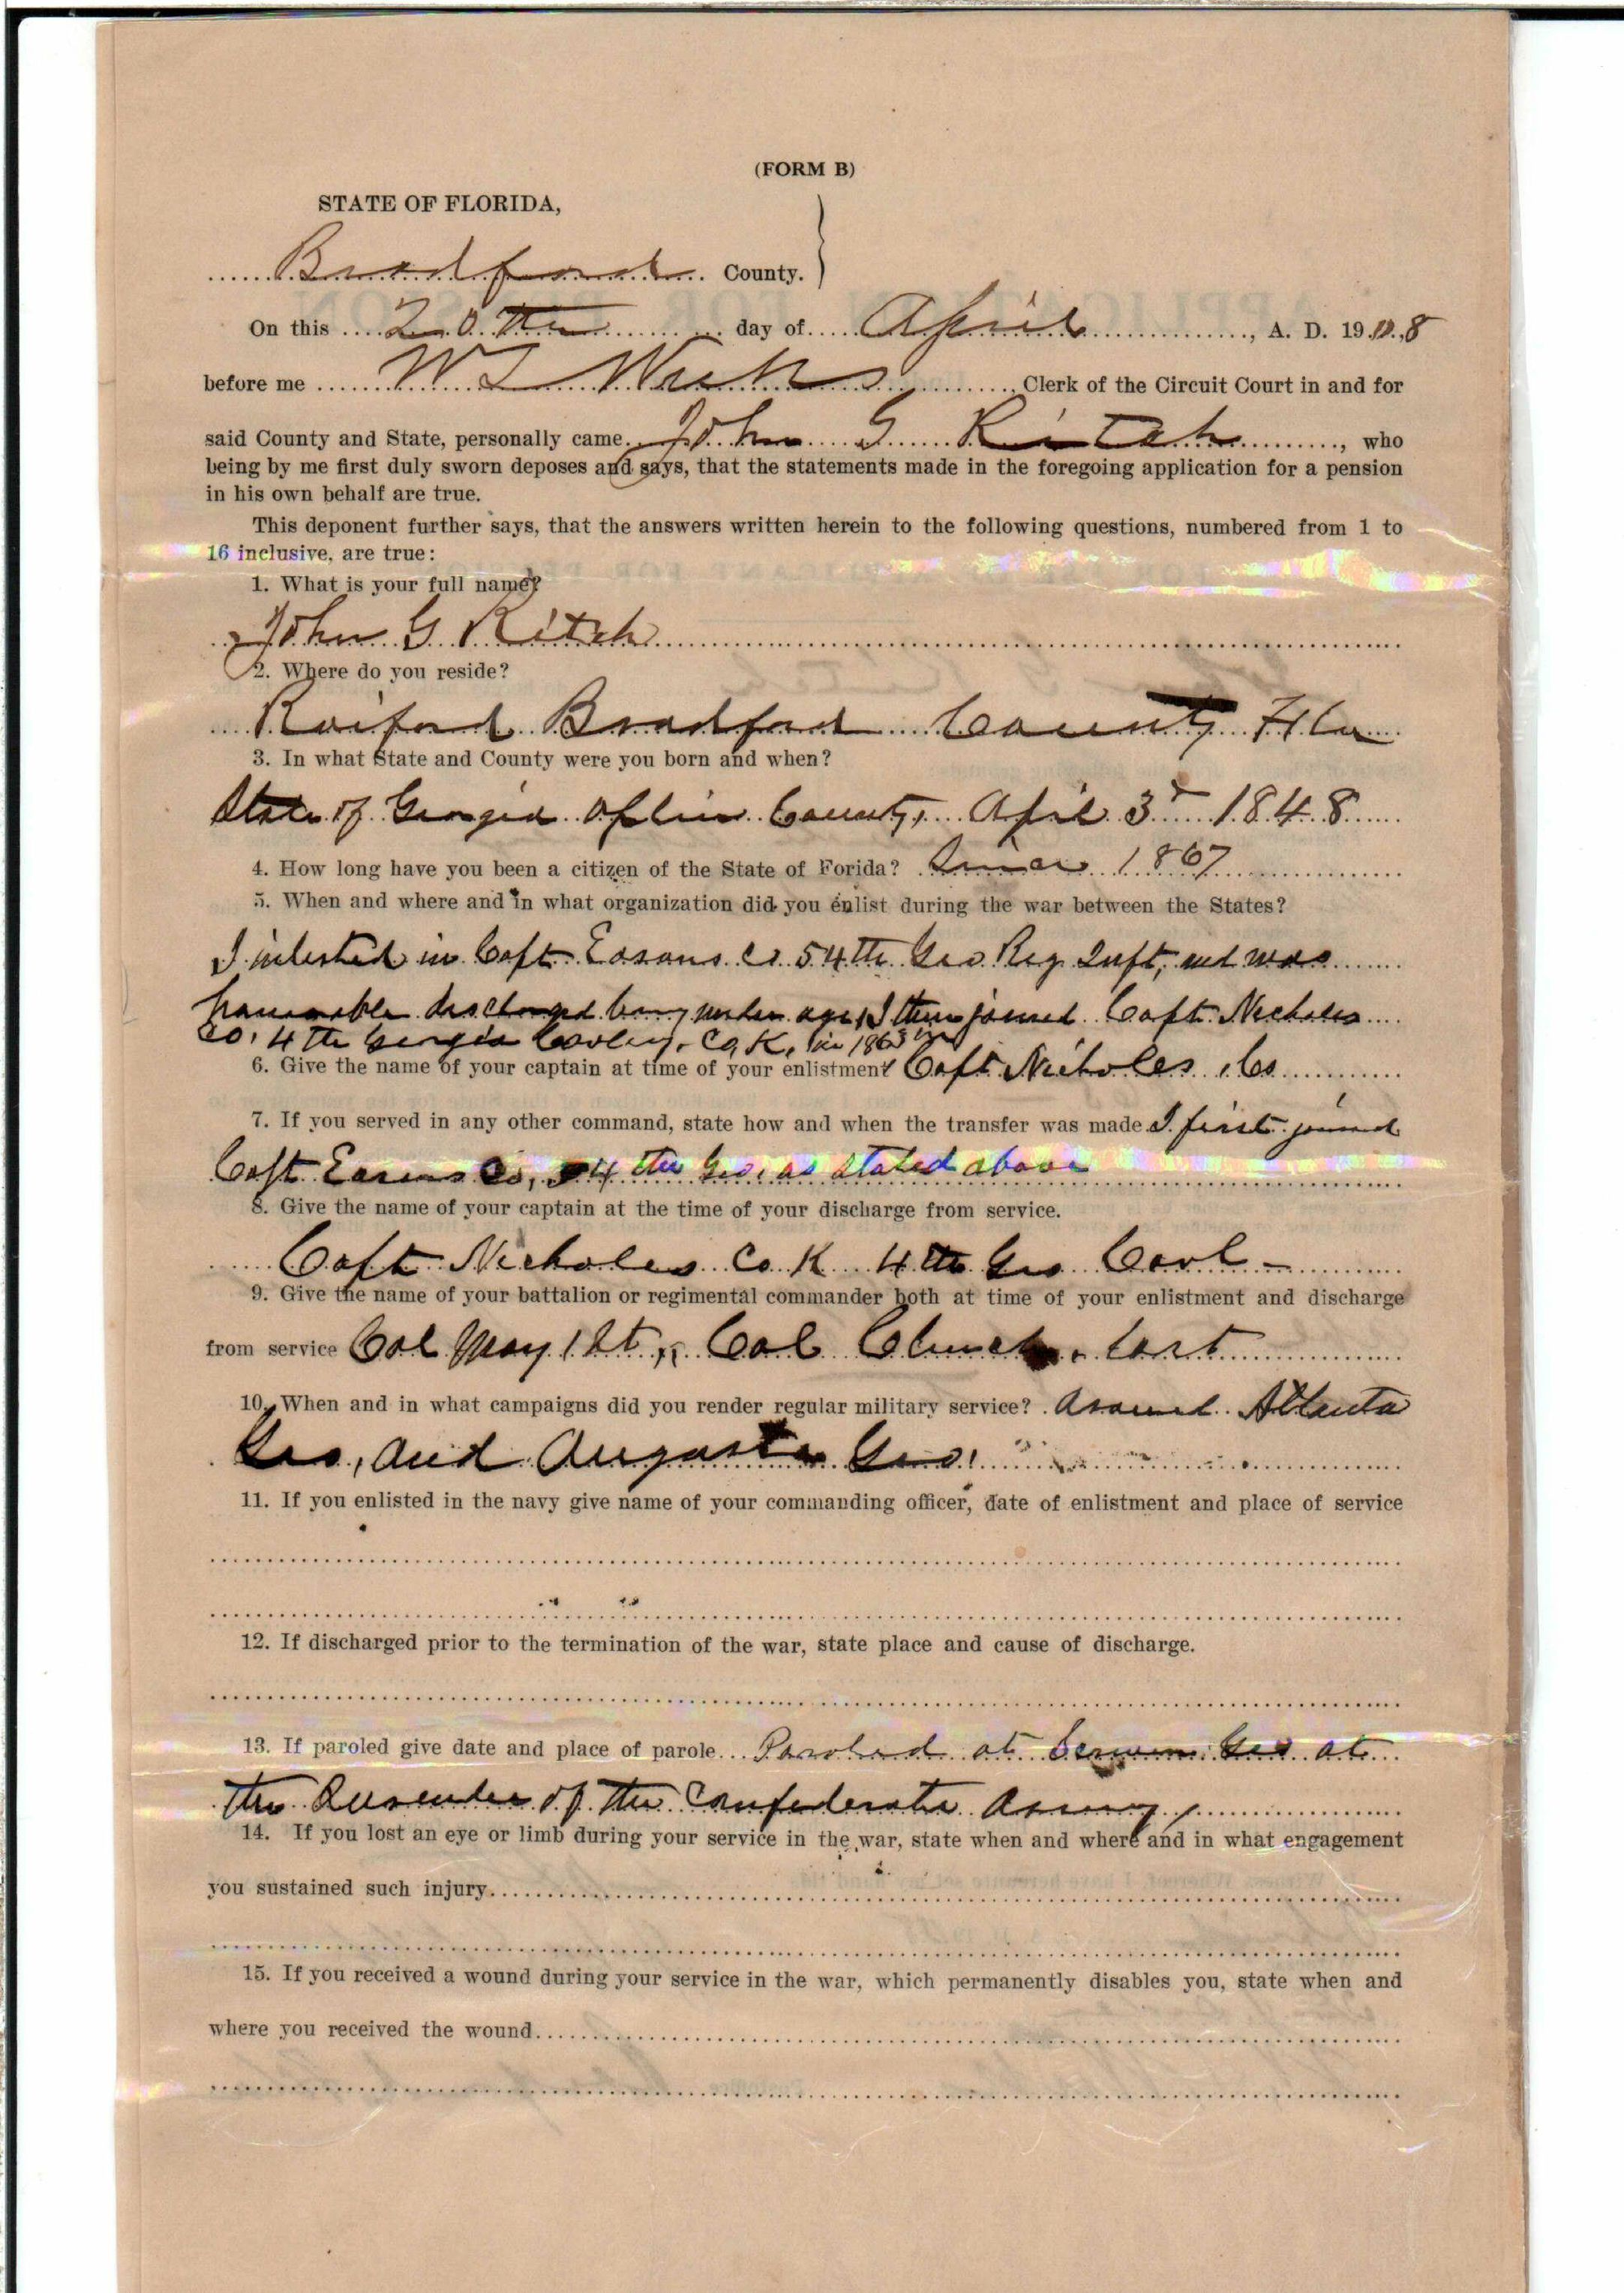 (FORM B)
STATE OF FLORIDA,
Bradford County.
On this 20th day of April, A. D. 1908
before me W L Clerk of the Circuit Court in and for
said County and State, personally came John G Ritch, who
being by me first duly sworn deposes and says, that the statements made in the foregoing application for a pension
in his own behalf are true.
This deponent further says, that the answers written herein to the following questions, numbered from 1 to
16 inclusive, are true:
1. What is your full name?
John G Ritch
2. Where do you reside?
Raiford Bradford County Fla
3. In what State and County were you born and when?
State of Georgia County, April 3d 1848
4. How long have you been a citizen of the State of Forida? Since 1867
5. When and where and in what organization did you enlist during the war between the States?
I inlested in Capt Easons Co 54th Geo Reg Inft, and was
discharged being under age, I then joined Capt Nicholes
Co, 4th Georgia Co, K, in 1863
6. Give the name of your captain at time of your enlistment Capt Nicholes Co
7. If you served in any other command, state how and when the transfer was made I first joined
Capt Easons Co, 54th Geo, as stated above
8. Give the name of your captain at the time of your discharge from service.
Capt Nicholes Co K 4th Geo Cavl -
9. Give the name of your battalion or regimental commander both at time of your enlistment and discharge
from service Col May 1st, Col Clinch, last
10. When and in what campaigns did you render regular military service? Around Atlanta
Geo, and Augusta Geo,
11. If you enlisted in the navy give name of your commanding officer, date of enlistment and place of service
12. If discharged prior to the termination of the war, state place and cause of discharge.
13. If paroled give date and place of parole Paroled at Geo at
the Surender of the Confederate Army
14. If you lost an eye or limb during your service in the war, state when and where and in what engagement
you sustained such injury
15. If you received a wound during your service in the war, which permanently disables you, state when and
where you received the wound